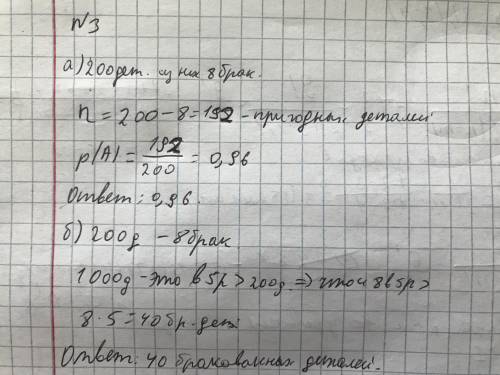 №3
а) 200дет. из них 8 брак.
n = 200 - 8 = 192 - пригодных деталей
p(A) = 192/200 = 0,96
Ответ: 0,96.
б) 200д - 8 брак
1000д - это в 5р > 200д. => и 8 в 5р >
8 · 5 = 40 бр. дет.
Ответ: 40 бракованных деталей.